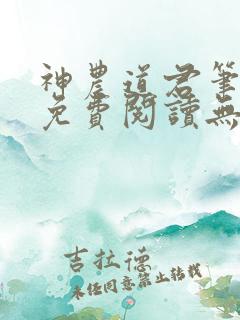 神農道君筆
免費閱讀無
吉拉德
未經同意禁止轉載